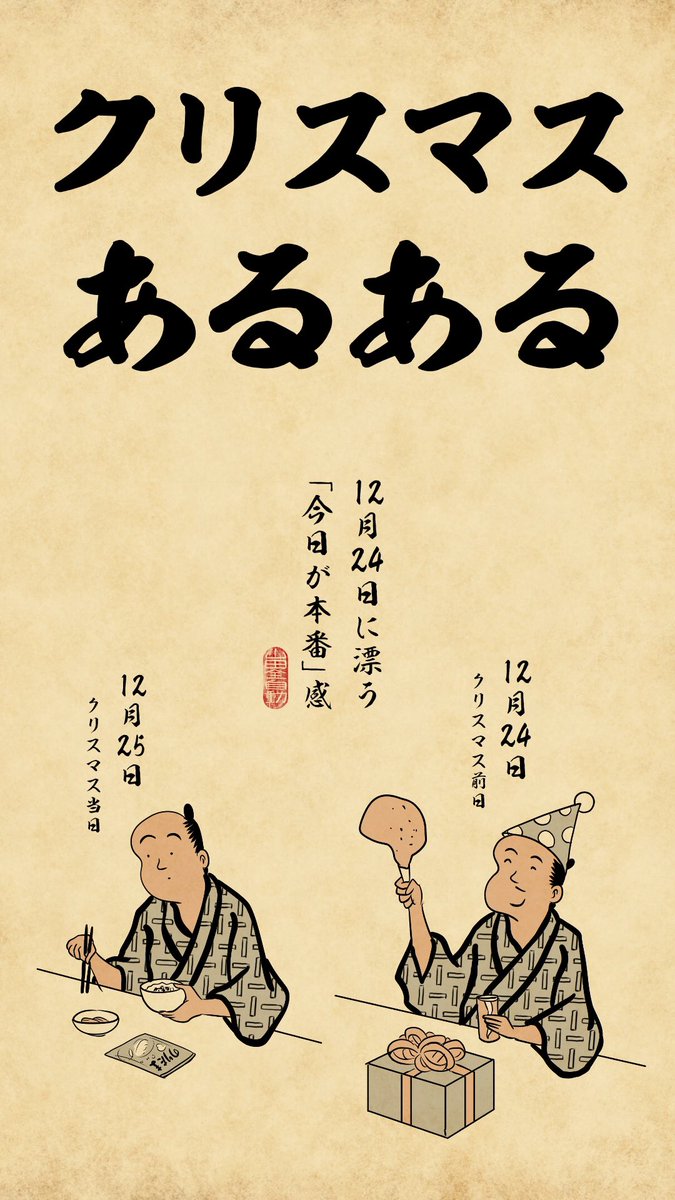 クリスマス
あるある
12月24日に漂う
「今日が本番」感
12月24日
クリスマス前日
12月25日
クリスマス当日